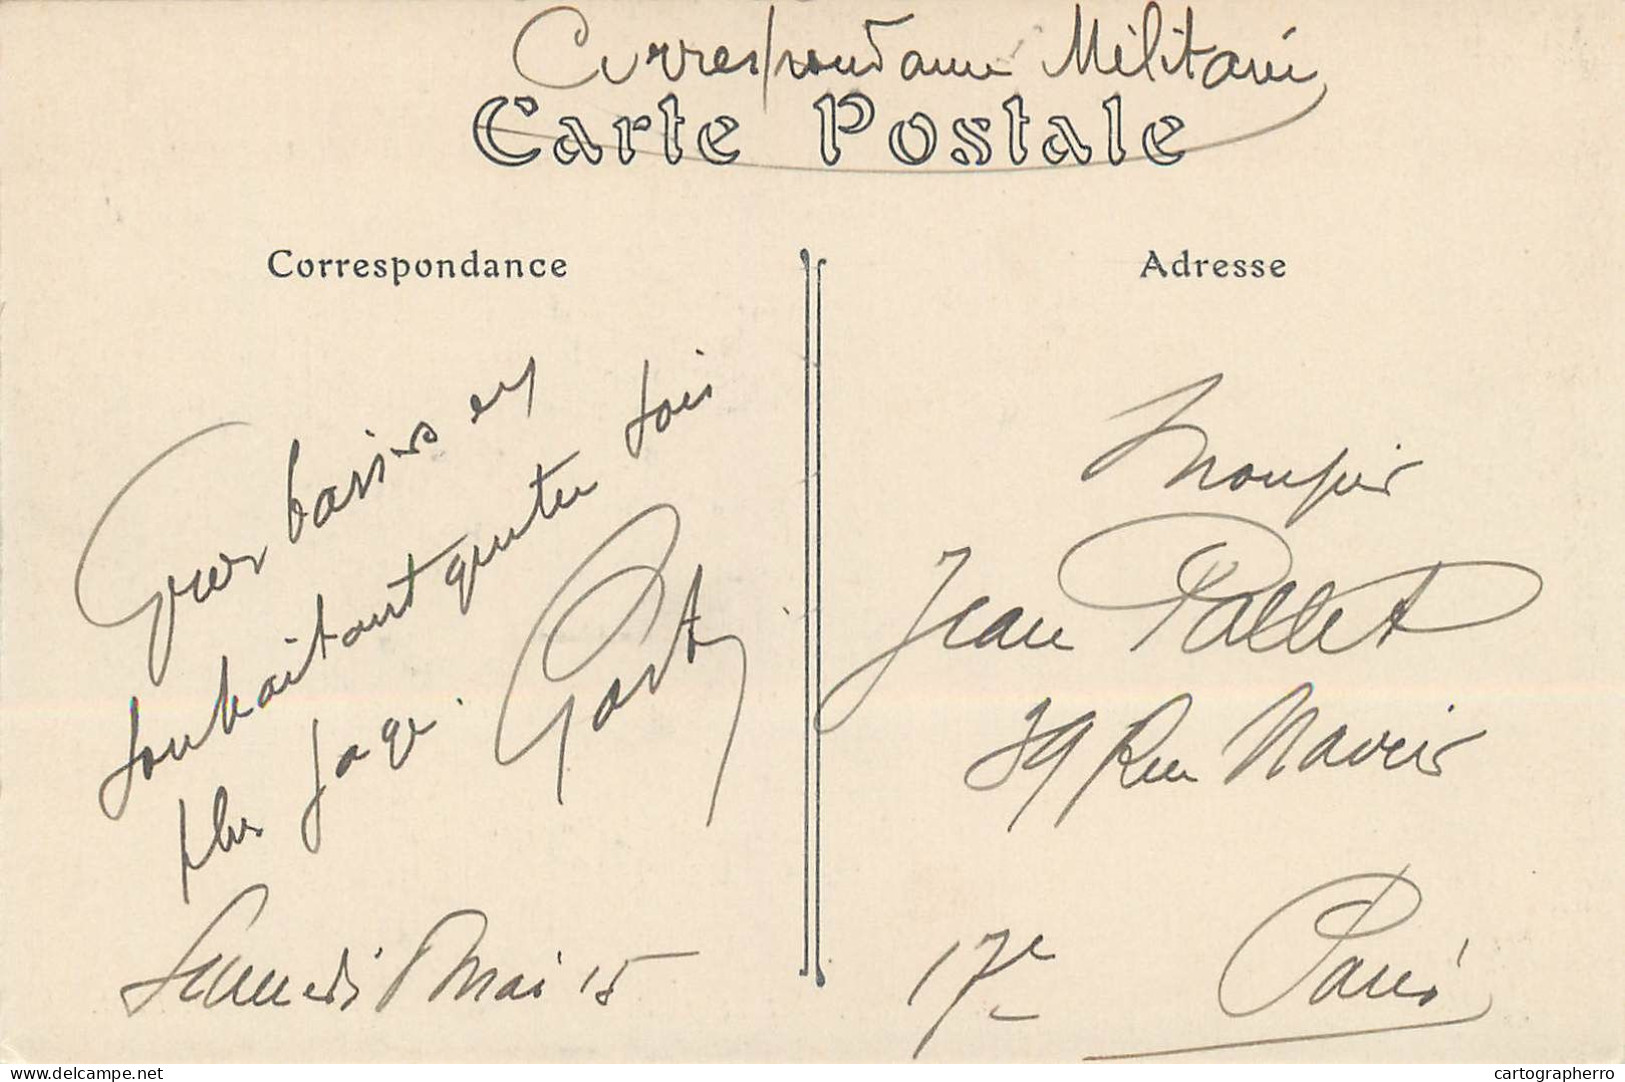 Correspondance Militaire
Carte Postale
Correspondance
Adresse
Gros baisers en
souhaitant que tu sois
plus sage.
Samedi 8 mai 15
Monsieur
Jean Pallet
39 Rue Navier
17e Paris
delcampe.net
cartographerro